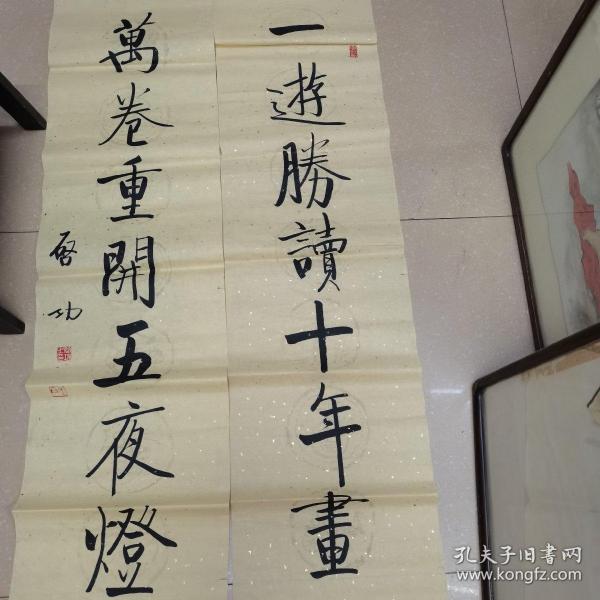 一遊勝讀十年畫
萬卷重開五夜燈
啓功
孔夫子旧書网
www.kongfz.com